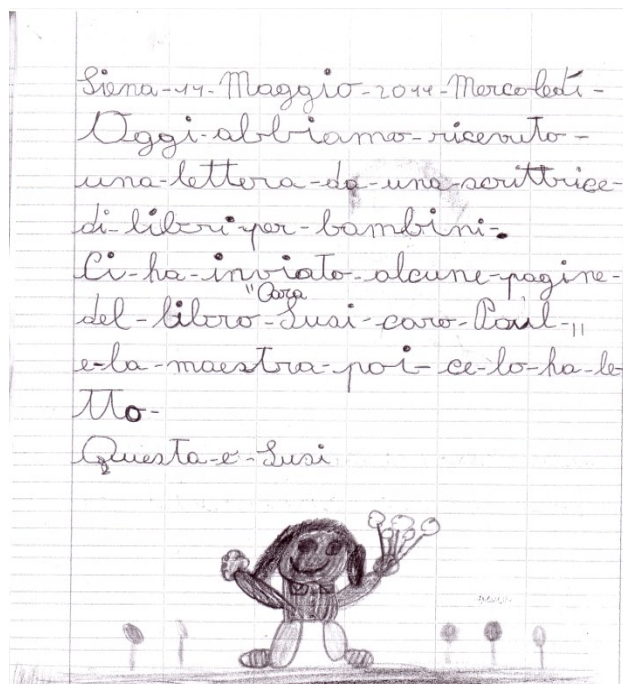 Siena-11-Maggio-2011-Mercoledì-
Oggi-abbiamo-ricevuto-
una-lettera-da-una-scrittrice-
di-libri-per-bambini-.
Ci-ha-inviato-alcune-pagine-
"Cara
del-libro-Susi-caro-Paul-"
e-la-maestra-poi-ce-lo-ha-le-
tto-
Questa-e-Susi